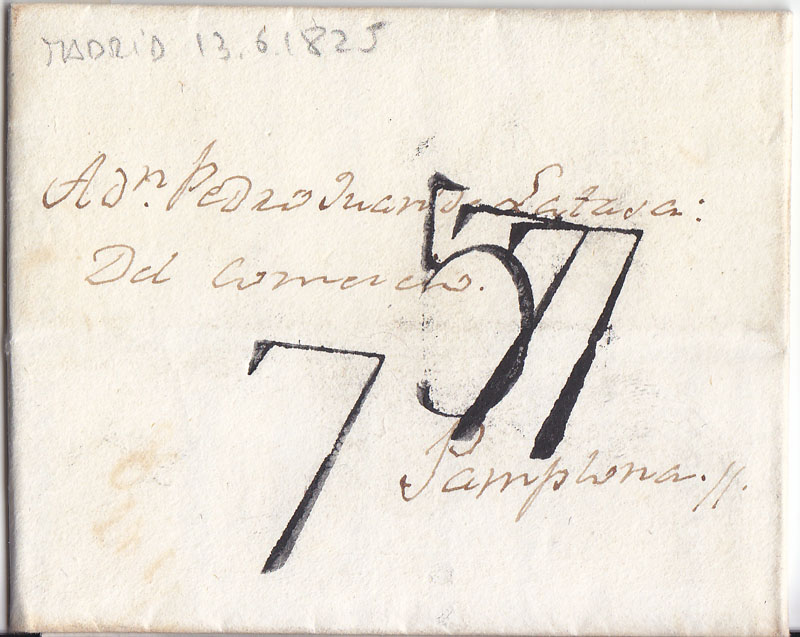 MADRID 13.6.1825
A Dn. Pedro Juan de Lataza:
Del Comercio.
57
7
Pamplona.